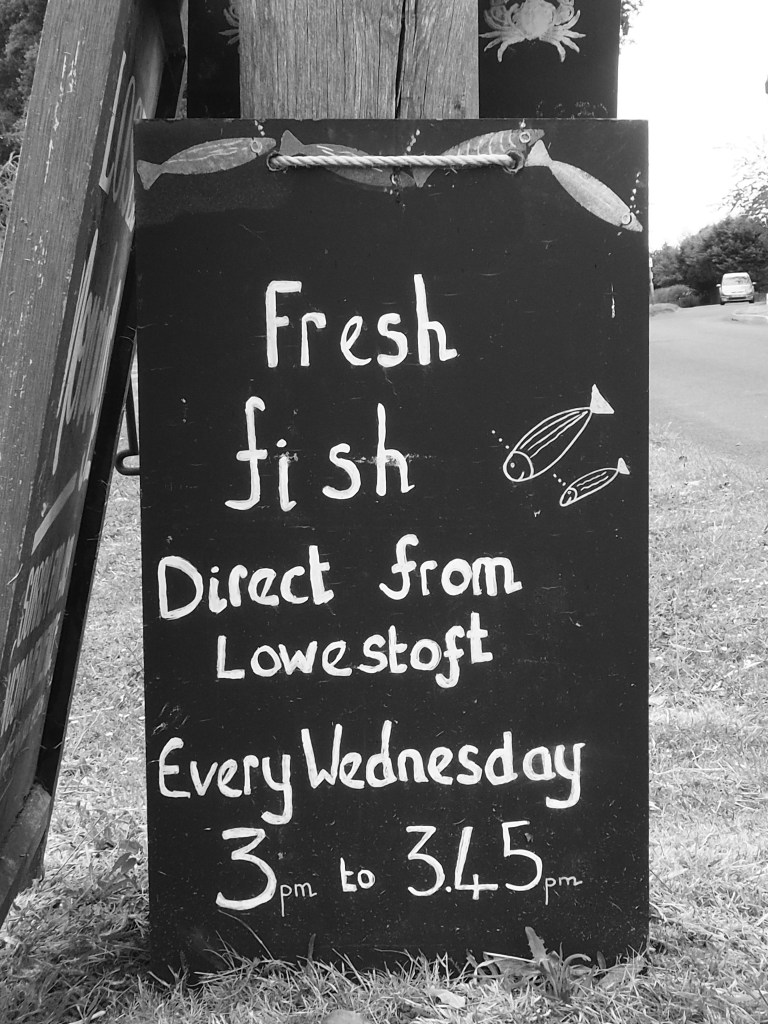 Fresh
fish
Direct from
Lowestoft
Every Wednesday
3pm to 3.45pm